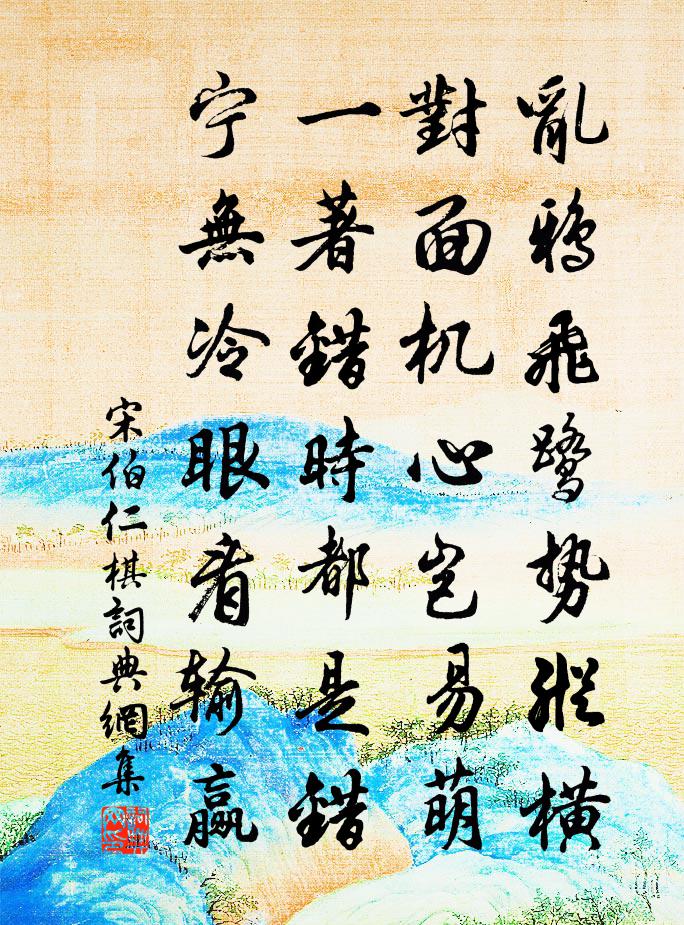 亂鴉飛鷺势縱橫
對面机心岂易萌
一著錯時都是錯
宁無冷眼看输贏
宋伯仁棋詞典網集